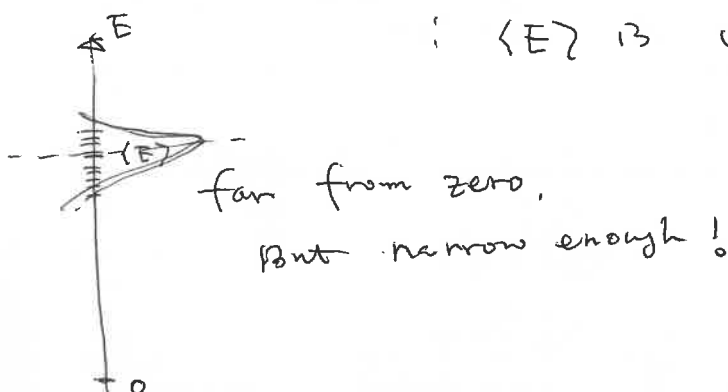 E
: ⟨E⟩ is
⟨E⟩
far from zero.
But narrow enough!
0